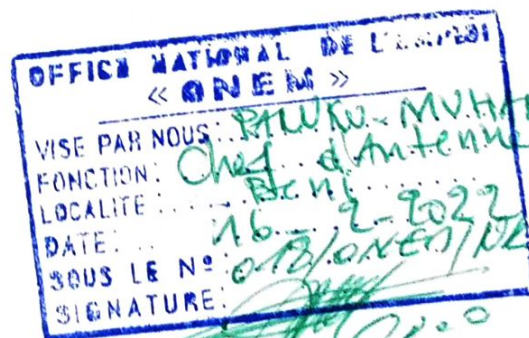 OFFICE NATIONAL DE L'EMPLOI
« ONEM »
VISE PAR NOUS: PALUKU - MUHA
FONCTION: Chef d'Antenne
LOCALITE: Beni
DATE: 16 - 2 - 2022
SOUS LE Nº: 013/ONEM/
SIGNATURE: